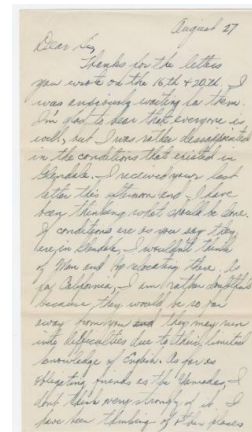 August 27
Dear Sis,
Thanks for the letters
you wrote on the 16th & 20th. I
was anxiously waiting for them.
I'm glad to hear that everyone is
well, but I was rather disappointed
in the conditions that existed in
Glendale. I received your last
letter this afternoon and I have
been thinking what should be done.
If conditions are as you say they
are in Glendale, I wouldn't think
of Mom and Pop relocating there. As
for California, I am rather doubtful
because they would be so far
away from you and they may run
into difficulties due to their limited
knowledge of English. As far as
obligating friends as the
don't think very strongly of it. I
have been thinking of other places